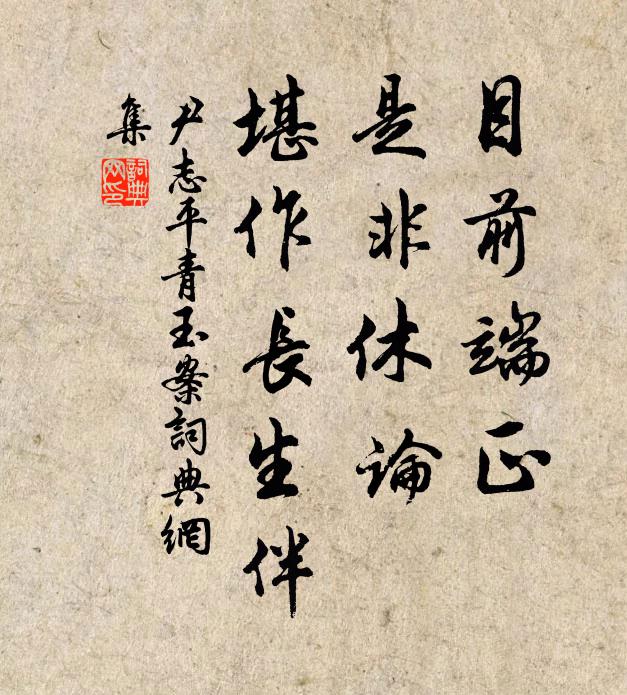 目前端正
是非休论
堪作長生伴
尹志平青玉案詞典網
集
詞典
网印